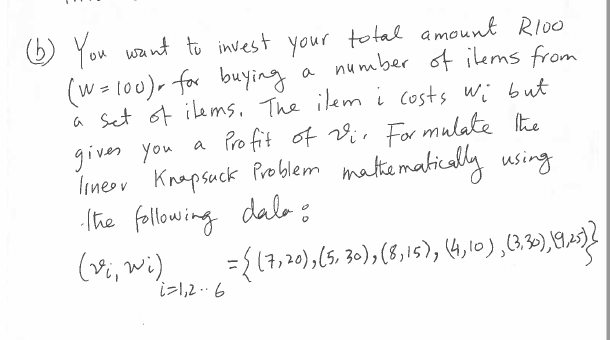 (b) You want to invest your total amount R100
(W = 100), for buying a number of items from
a set of items. The item i costs wi but
gives you a Profit of vi. Formulate the
linear Knapsack Problem mathematically using
the following data :
(vi, wi) i=1,2..6 = {(7,20),(5,30),(8,15),(4,10),(3,30),(9,25)}